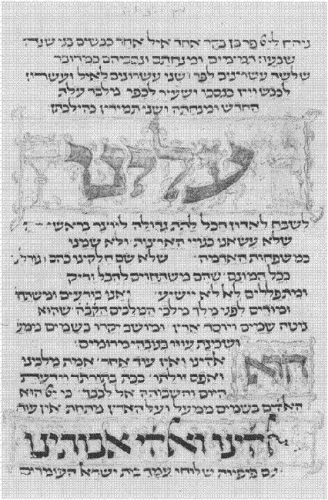 ניחח לי׳ פר בן בקר אחד איל אחד כבשים בני שנה
שבעה תמימים ומנחתם ונסכיהם כמדובר
שלשה עשרונים לפר ושני עשרונים לאיל ועשרון
לכבש ויין כנסכו ושעיר לכפר מלבד עלת
החדש ומנחתה ושני תמידין כהילכתן
עלינו
לשבח לאדון הכל לתת גדולה ליוצר בראשי׳
שלא עשאנו כגויי הארצות ולא שמנו
כמשפחות האדמה שלא שם חלקינו כהם
ככל המונם שהם משתחוים להבל וריק
ומתפללים לא לא יושיע ואנו כורעים ומשתחו׳
ומודים לפני מלך מלכי המלכים הקבה שהוא
נוטה שמים ויוסד ארץ ומושב יקרו בשמים ממע׳
ושכינת עוזו בגובהי מרומים
הוא
אלהינו ואין עוד אחר אמת מלכינו
ואפס זולתו ככת׳ בתורתו וידעת
היום והשבות אל לבבך כי י׳ הוא
האלהים בשמים ממעל ועל הארץ מתחת אין עוד
אלהינו ואלהי אבותינו
עם פיפיות שלוחי עמך בית ישראל העומדים